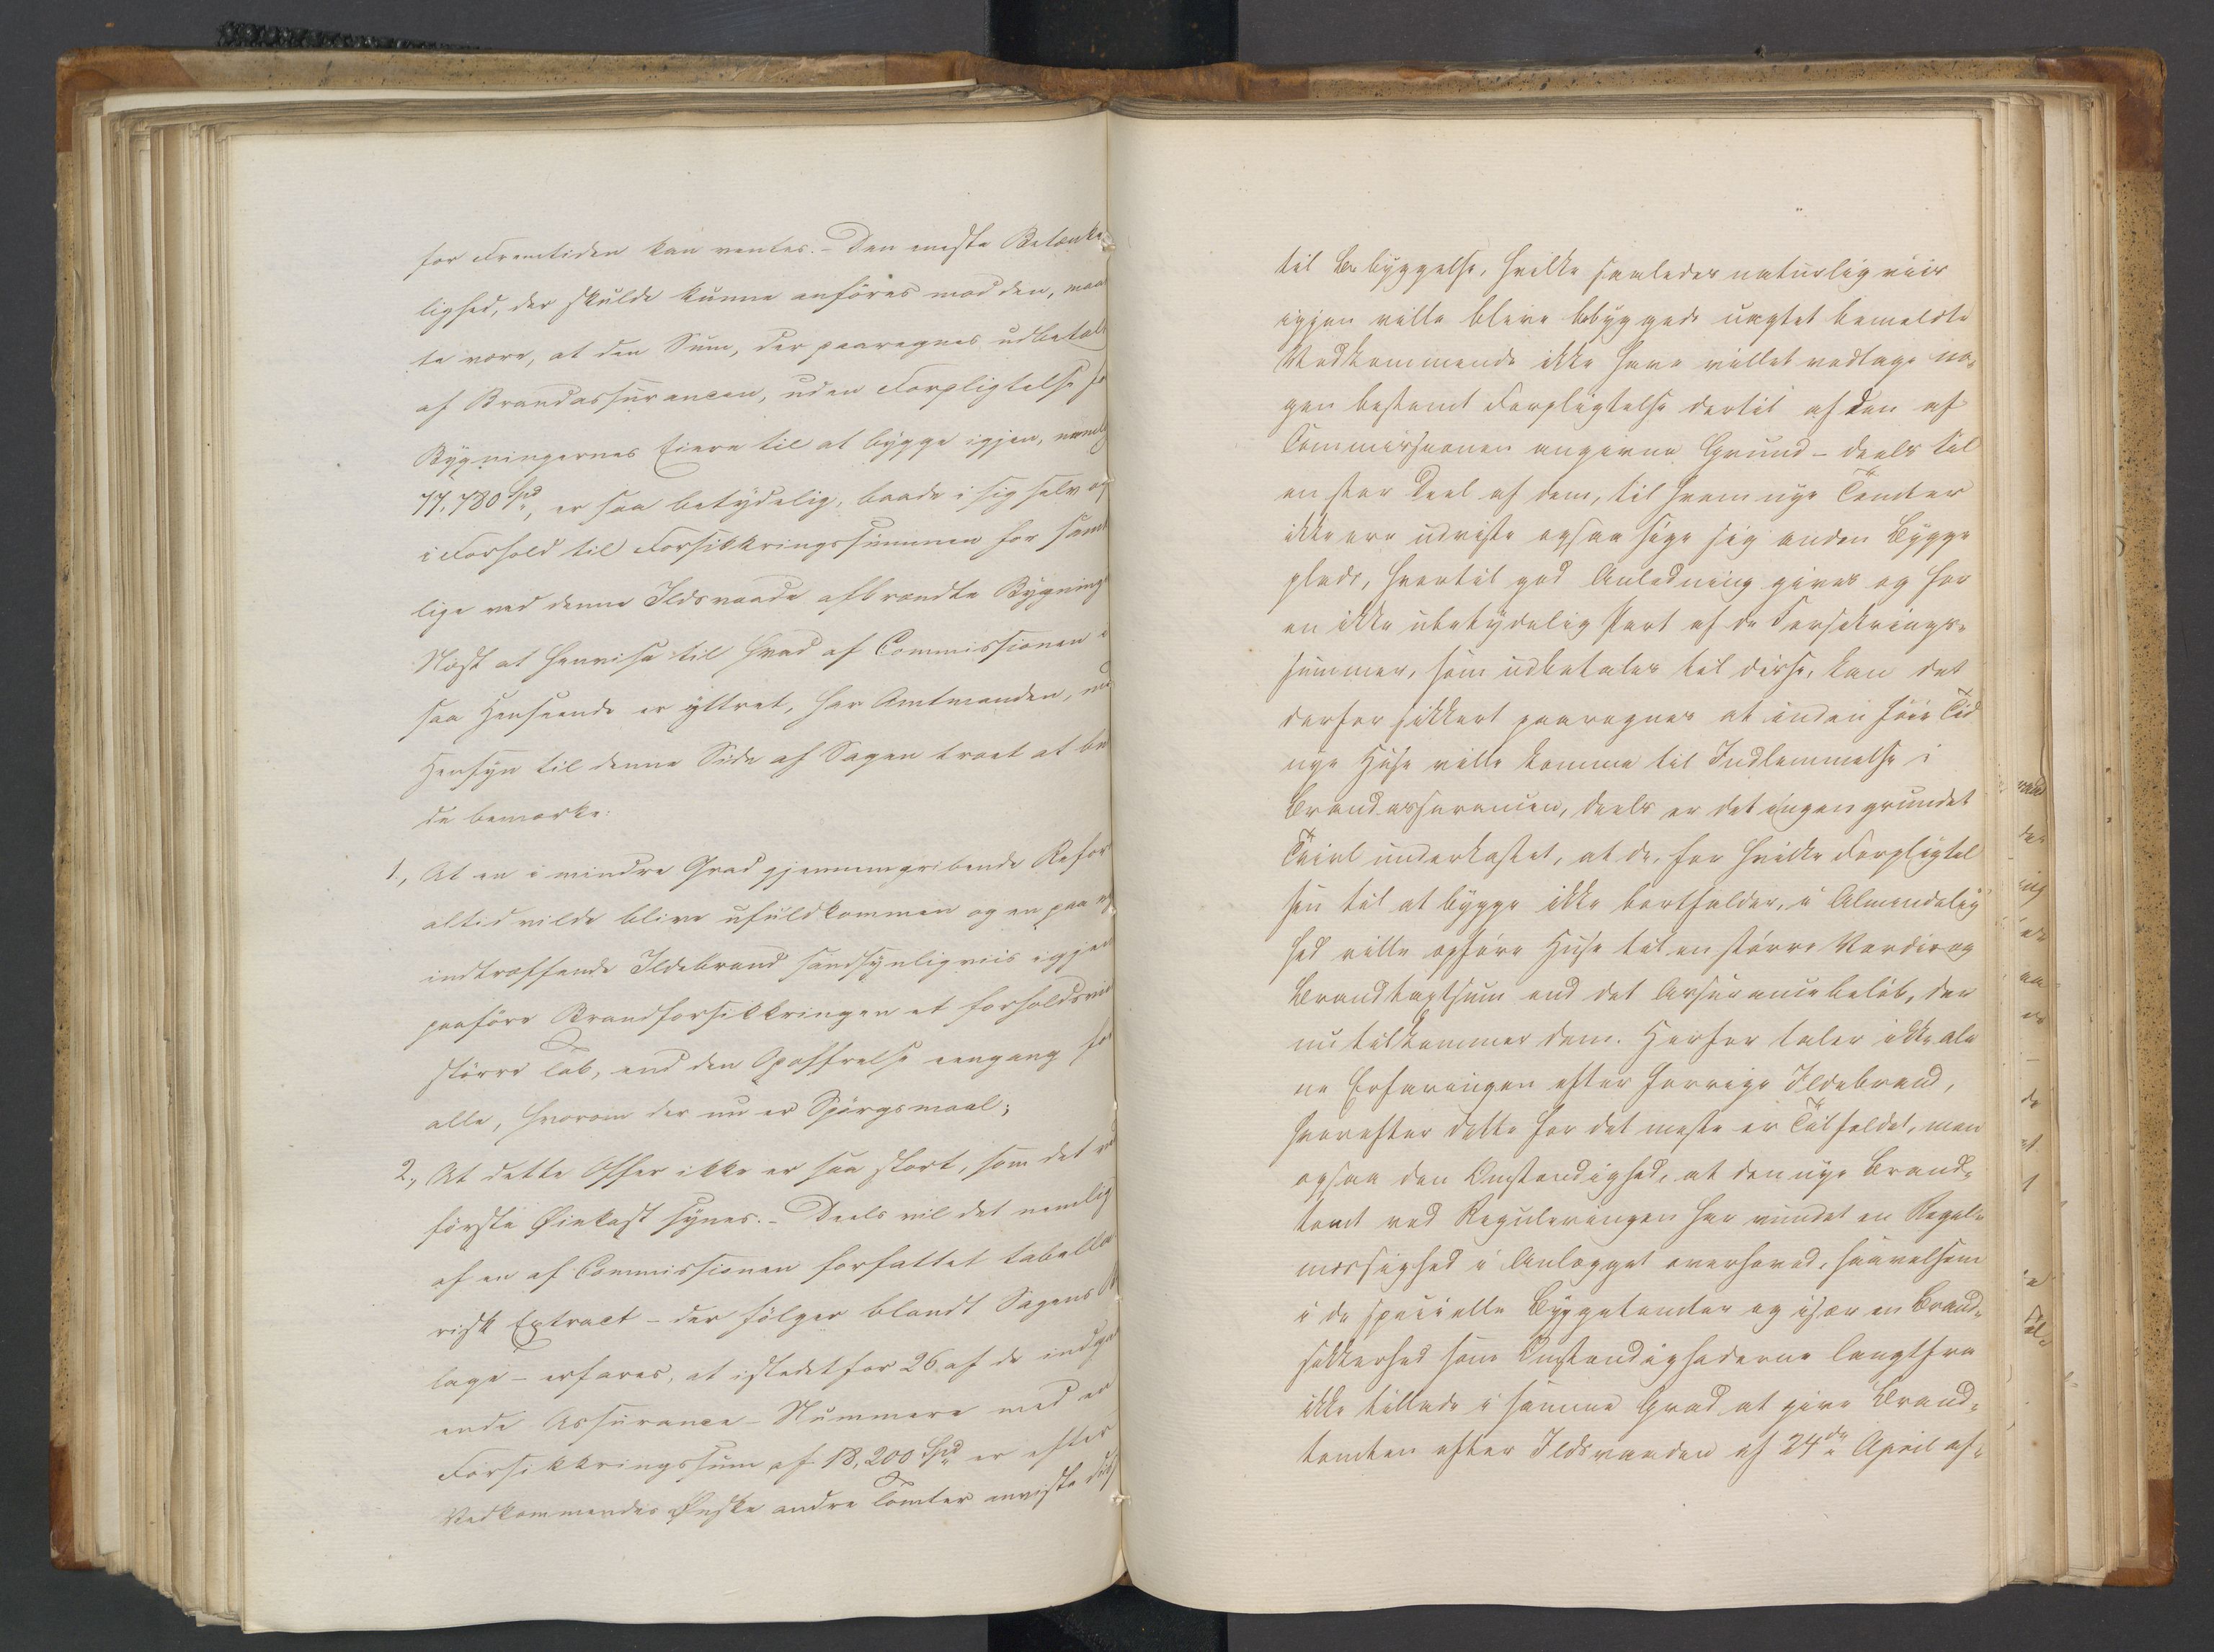 for Fremtiden kan ventes. – Den eneste Betænke
lighed, der skulde kunne anføres mod den, maa
te være, at den Sum, der paaregnes udbetalt
af Brandassurancen, uden Forpligtelse fo
Bygningernes Eiere til at bygge igjen, neml
77,780 Spd, er saa betydelig, baade i sig selv og
i Forhold til Forsikkringssummen for samt
lige ved denne Ildsvaade afbrændte Bygning
Næst at henvise til hvad af Commissionen i
saa Henseende er yttret, har Amtmanden, med
Hensyn til denne Side af Sagen troet at bu
de bemærke:
1., At en i mindre Grad gjennemgribende Refor
altid vilde blive ufuldkommen og en paa ny
indtræffende Ildebrand sandsynligviis igjen
paaføre Brandforsikkringen et forholdsvis
større Tab, end den Opoffrelse eengang for
alle, hvorom der nu er Spørgsmaal;
2., At dette Offer ikke er saa stort, som det ved
første Øiekast synes. – Deels vil det nemlig
af en af Commissionen forfattet tabella
risk Extract – der følger blandt Sagens B
lage – erfares, at istedetfor 26 af de indga
ende Assurance-Nummere med en
Forsikkringssum af 18,200 Spd er efter
Vedkommendes Ønske andre Tomter anviste dis
til Bebyggelse, hvilke saaledes naturligviis
igjen ville blive bebyggede uagtet bemeldte
Vedkommende ikke have villet vedtage no-
gen bestemt Forpligtelse dertil af den af
Commissionen angivne Grund – deels vil
en stor Deel af dem, til hvem nye Tomter
ikke ere udviste ogsaa søge sig anden Bygge
plads, hvortil god Anledning gives og for
en ikke ubetydelig Part af de Forsikrings-
summer, som udbetales til disse, kan det
derfor sikkert paaregnes at inden føie Tid
nye Huse ville komme til Indlemmelse i
Brandassurancen, deels er det ingen grundet
Tvivl underkastet, at de, for hvilke Forpligtel
sen til at bygge ikke bortfalder, i Almindelig
hed ville opføre Huse til en større Værdie og
Brandtaxtsum end det Assurancebeløb, der
nu tilkommer dem. Herfor taler ikke ale
ne Erfaringen efter forrige Ildebrand,
hvorefter dette for det meste er Tilfældet, men
ogsaa den Omstændighed, at den nye Brand-
tomt ved Reguleringen har vundet en Regel-
mæssighed i Anlægget overhoved, saavelsom
i de specielle Byggetomter og især en Brand-
sikkerhed som Omstændighederne langtfra
ikke tillode i samme Grad at give Brand-
tomten efter Ildsvaaden af 24de April af-